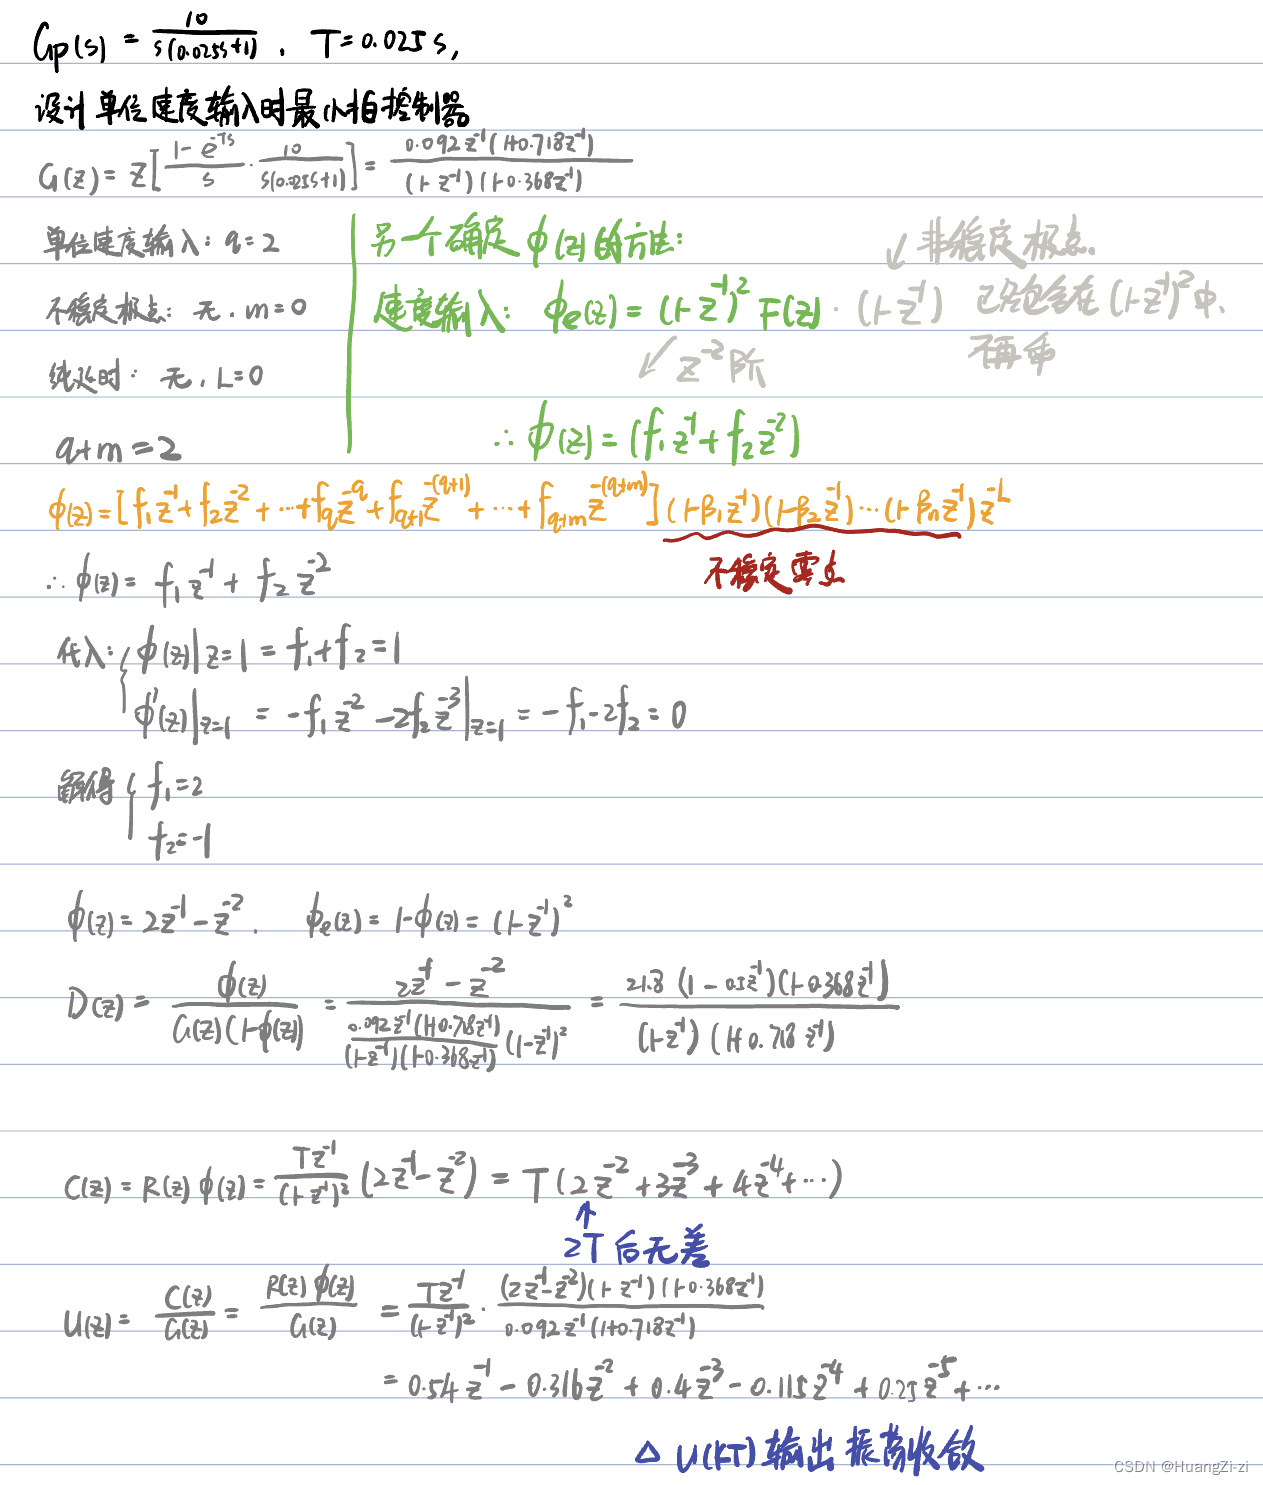 Gp(s) = 10 / s(0.025s+1) . T=0.025s,
设计单位速度输入时最小拍控制器
G(z) = Z[ (1-e^{-Ts})/s · 10/(s(0.025s+1)) ] = 0.092z^{-1}(1+0.718z^{-1}) / (1-z^{-1})(1-0.368z^{-1})
单位速度输入: q=2
不稳定极点: 无. m=0
纯延时: 无. L=0
q+m=2
另一个确定 ϕ(z) 的方法:
速度输入: ϕe(z) = (1-z^{-1})^2 F(z) · (1-z^{-1})
↙ 非稳定极点.
已经包含在 (1-z^{-1})^2 中.
不再乘
↙ z^{-2} 阶
∴ ϕ(z) = (f₁z^{-1} + f₂z^{-2})
ϕ(z) = [f₁z^{-1} + f₂z^{-2} + ··· + f_q z^{-q} + f_{q+1} z^{-(q+1)} + ··· + f_{q+m} z^{-(q+m)}] (1-β₁z^{-1})(1-β₂z^{-1})···(1-βₙz^{-1}) z^{-L}
不稳定零点
∴ ϕ(z) = f₁z^{-1} + f₂z^{-2}
代入: { ϕ(z)|z=1 = f₁+f₂=1
ϕ'(z)|z=1 = -f₁z^{-2} - 2f₂z^{-3}|z=1 = -f₁-2f₂=0
解得 { f₁=2
f₂=-1
ϕ(z) = 2z^{-1} - z^{-2}. ϕe(z) = 1-ϕ(z) = (1-z^{-1})^2
D(z) = ϕ(z) / G(z)(1-ϕ(z)) = (2z^{-1} - z^{-2}) / [0.092z^{-1}(1+0.718z^{-1}) / (1-z^{-1})(1-0.368z^{-1})] (1-z^{-1})^2 = 21.8 (1-0.5z^{-1})(1-0.368z^{-1}) / (1-z^{-1})(1+0.718z^{-1})
C(z) = R(z)ϕ(z) = Tz^{-1}/(1-z^{-1})^2 (2z^{-1} - z^{-2}) = T(2z^{-2} + 3z^{-3} + 4z^{-4} + ···)
↑
2T 后无差
U(z) = C(z)/G(z) = R(z)ϕ(z)/G(z) = Tz^{-1}/(1-z^{-1})^2 · (2z^{-1}-z^{-2})(1-z^{-1})(1-0.368z^{-1}) / 0.092z^{-1}(1+0.718z^{-1})
= 0.54z^{-1} - 0.316z^{-2} + 0.4z^{-3} - 0.115z^{-4} + 0.25z^{-5} + ···
△ U(kT) 输出振荡收敛
CSDN @HuangZi-zi